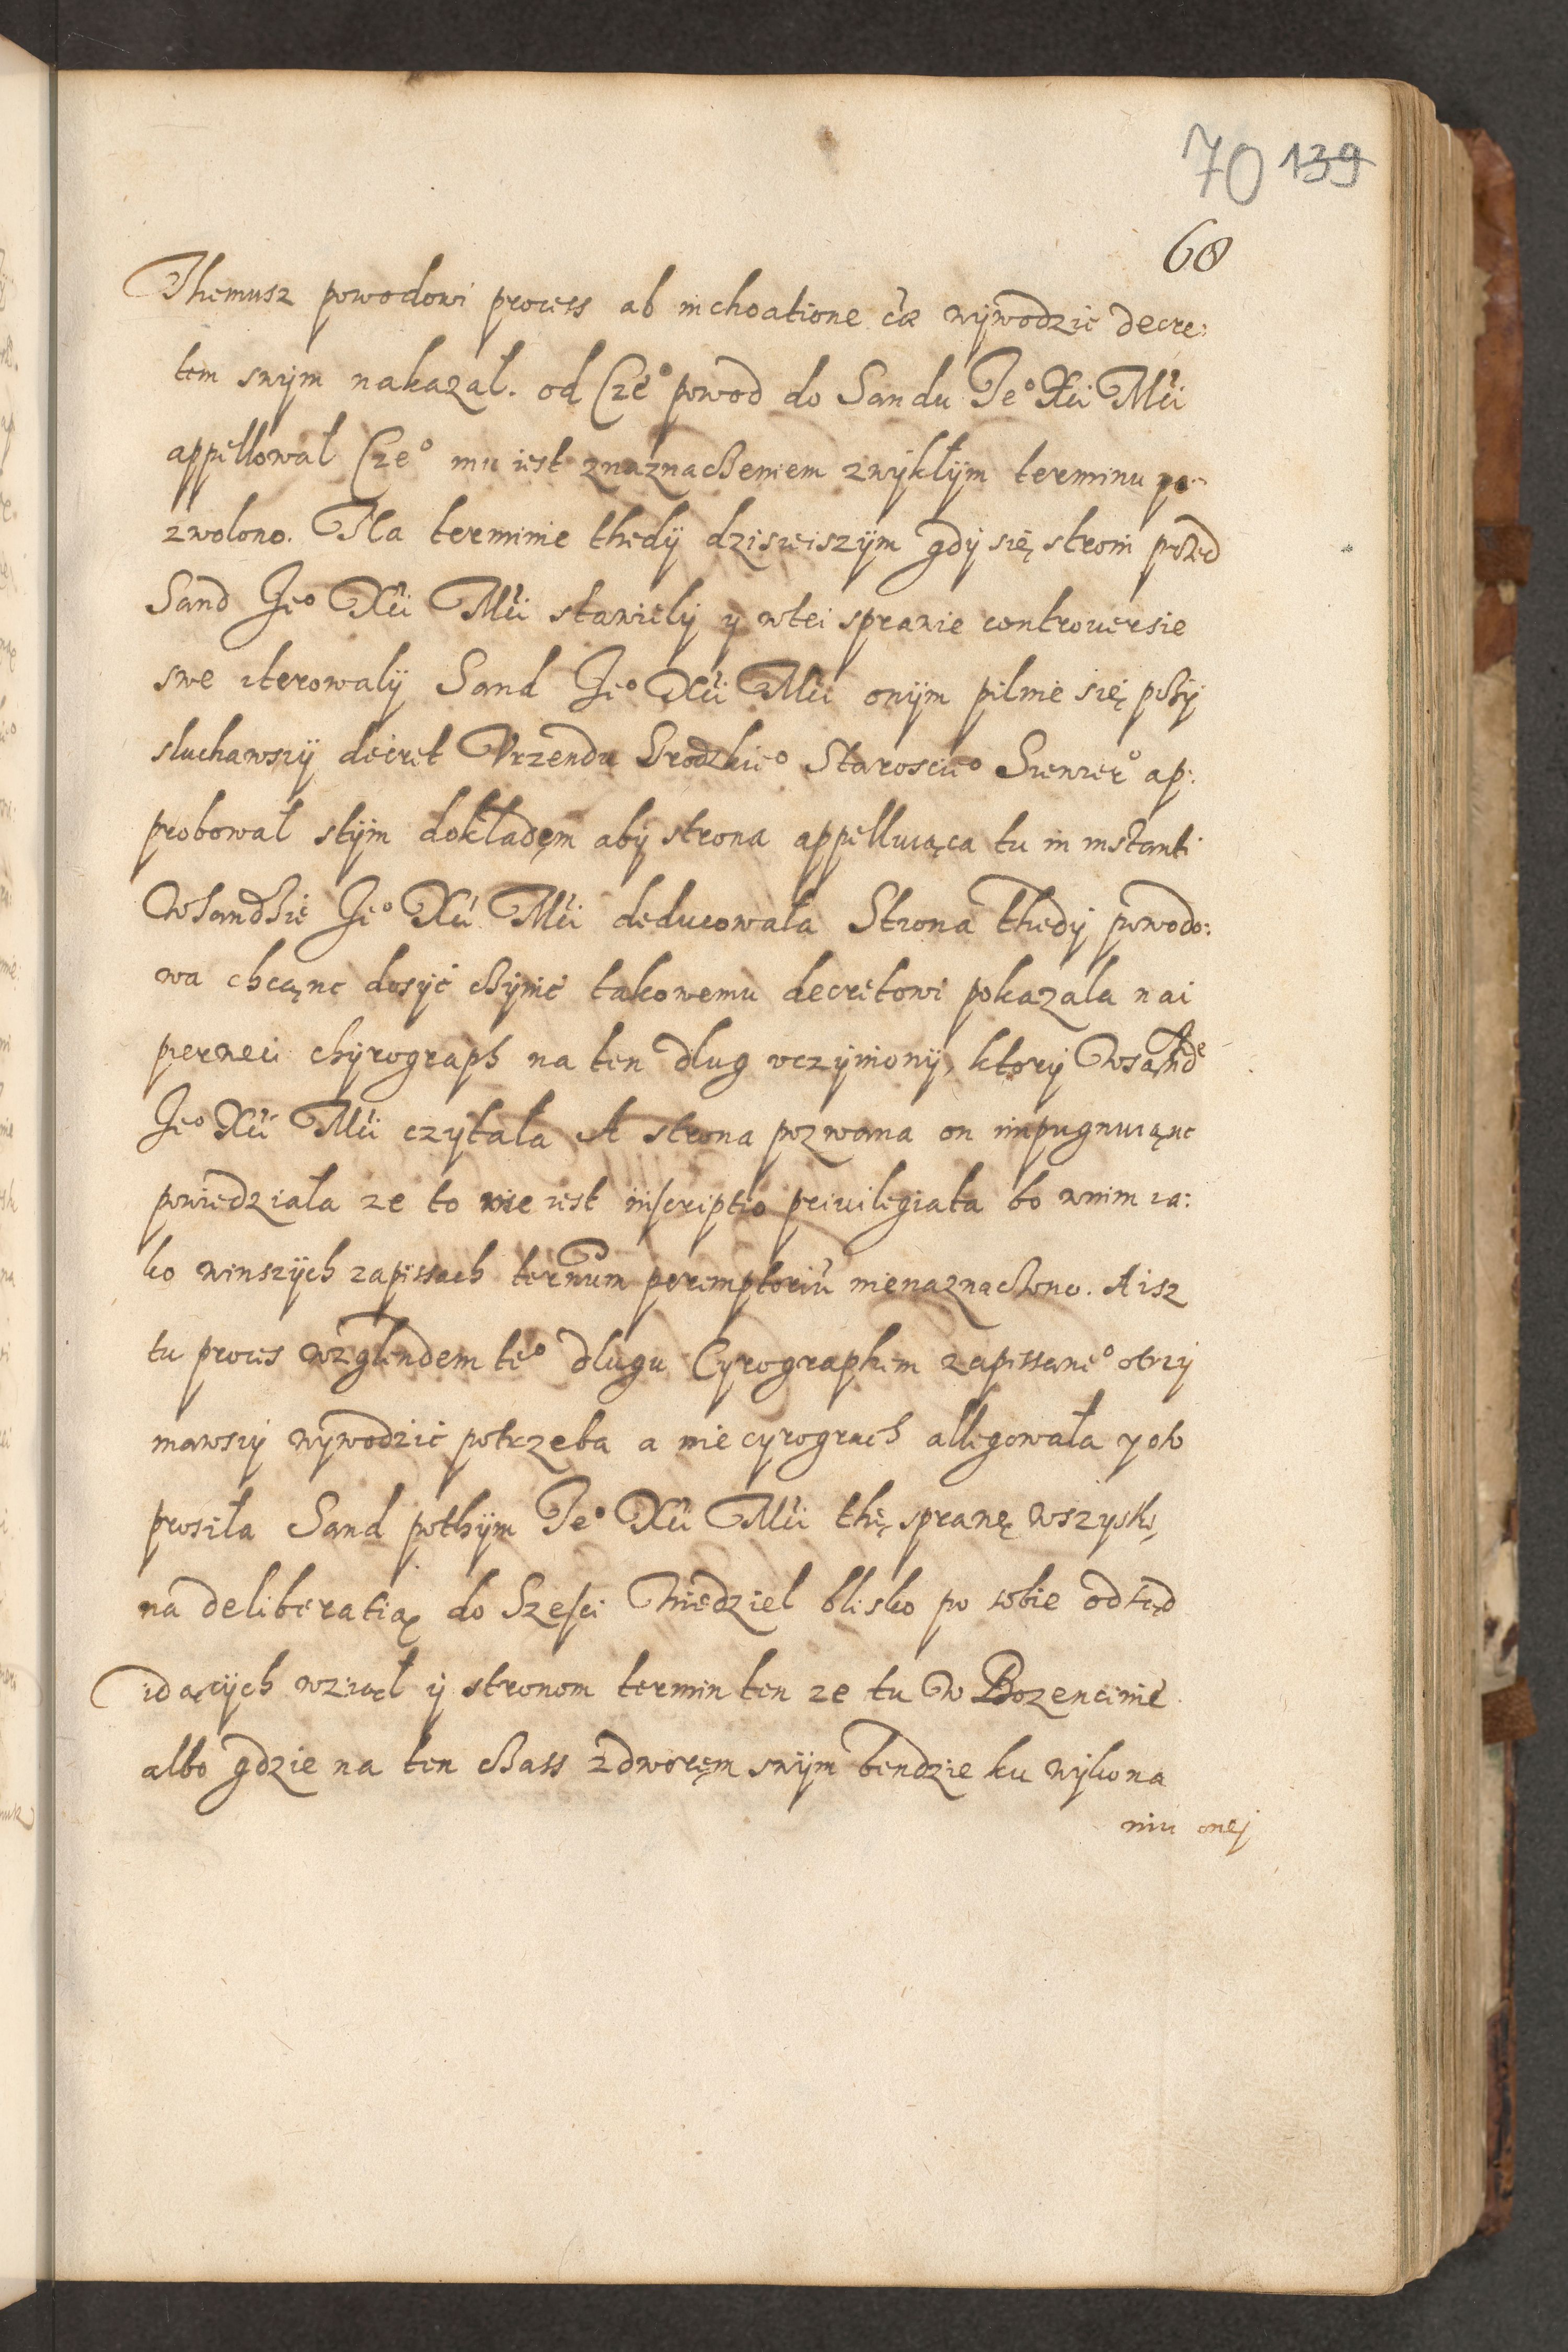 70 139
68
Themusz powodowi process ab inchoatione wywodzic decre:
tem swym nakazał. od Cze° powod do Sandu Je° Xci Mci
appellował Cze° mu iest znaznaczeniem zwykłym terminu po-
zwolono. Na terminie thedy dzisieiszym gdy się stroni przed
Sand Je° Xci Mci stawiely y wtei sprawie controuersie
swe iterowaly Sand Je° Xci Mci onym pilnie się przy
sluchawszy decret Vrzendu Grodzkie° Staroscie° Siewier° ap:
probował stym dokładęm aby strona appelluiąca tu in instanti
Wsandzie Je° Xci Mci deducowała Strona thedy powodo:
wa chcąnc dosyć czynić takowemu decretowi pokazala nai
pierwei chyrograph na ten dlug vczyniony, ktory Wsandzie
Je° Xci Mci czytała A strona pozwana on impugnuiąnc
powiedziała ze to nie iest inscriptio priuilegiata bo wnim ia:
ko winszych zapissach termin peremptoriu nienaznaczono. A isz
tu proces wzglendem te° dlugu Cyrographem zapissane° otrzy
mawszy wywodzic potrzeba a nie cyrograch allegowała y oto
prosiła Sand pothym Je° Xci Mci thę sprawę wszyskę
na deliberatią do Szesci Niedziel blisko po sobie odtąd
idących wziął y stronom termin ten ze tu W Bozencinie
albo gdzie na ten czass zdworęm swym bendzie ku wykona
niu onej